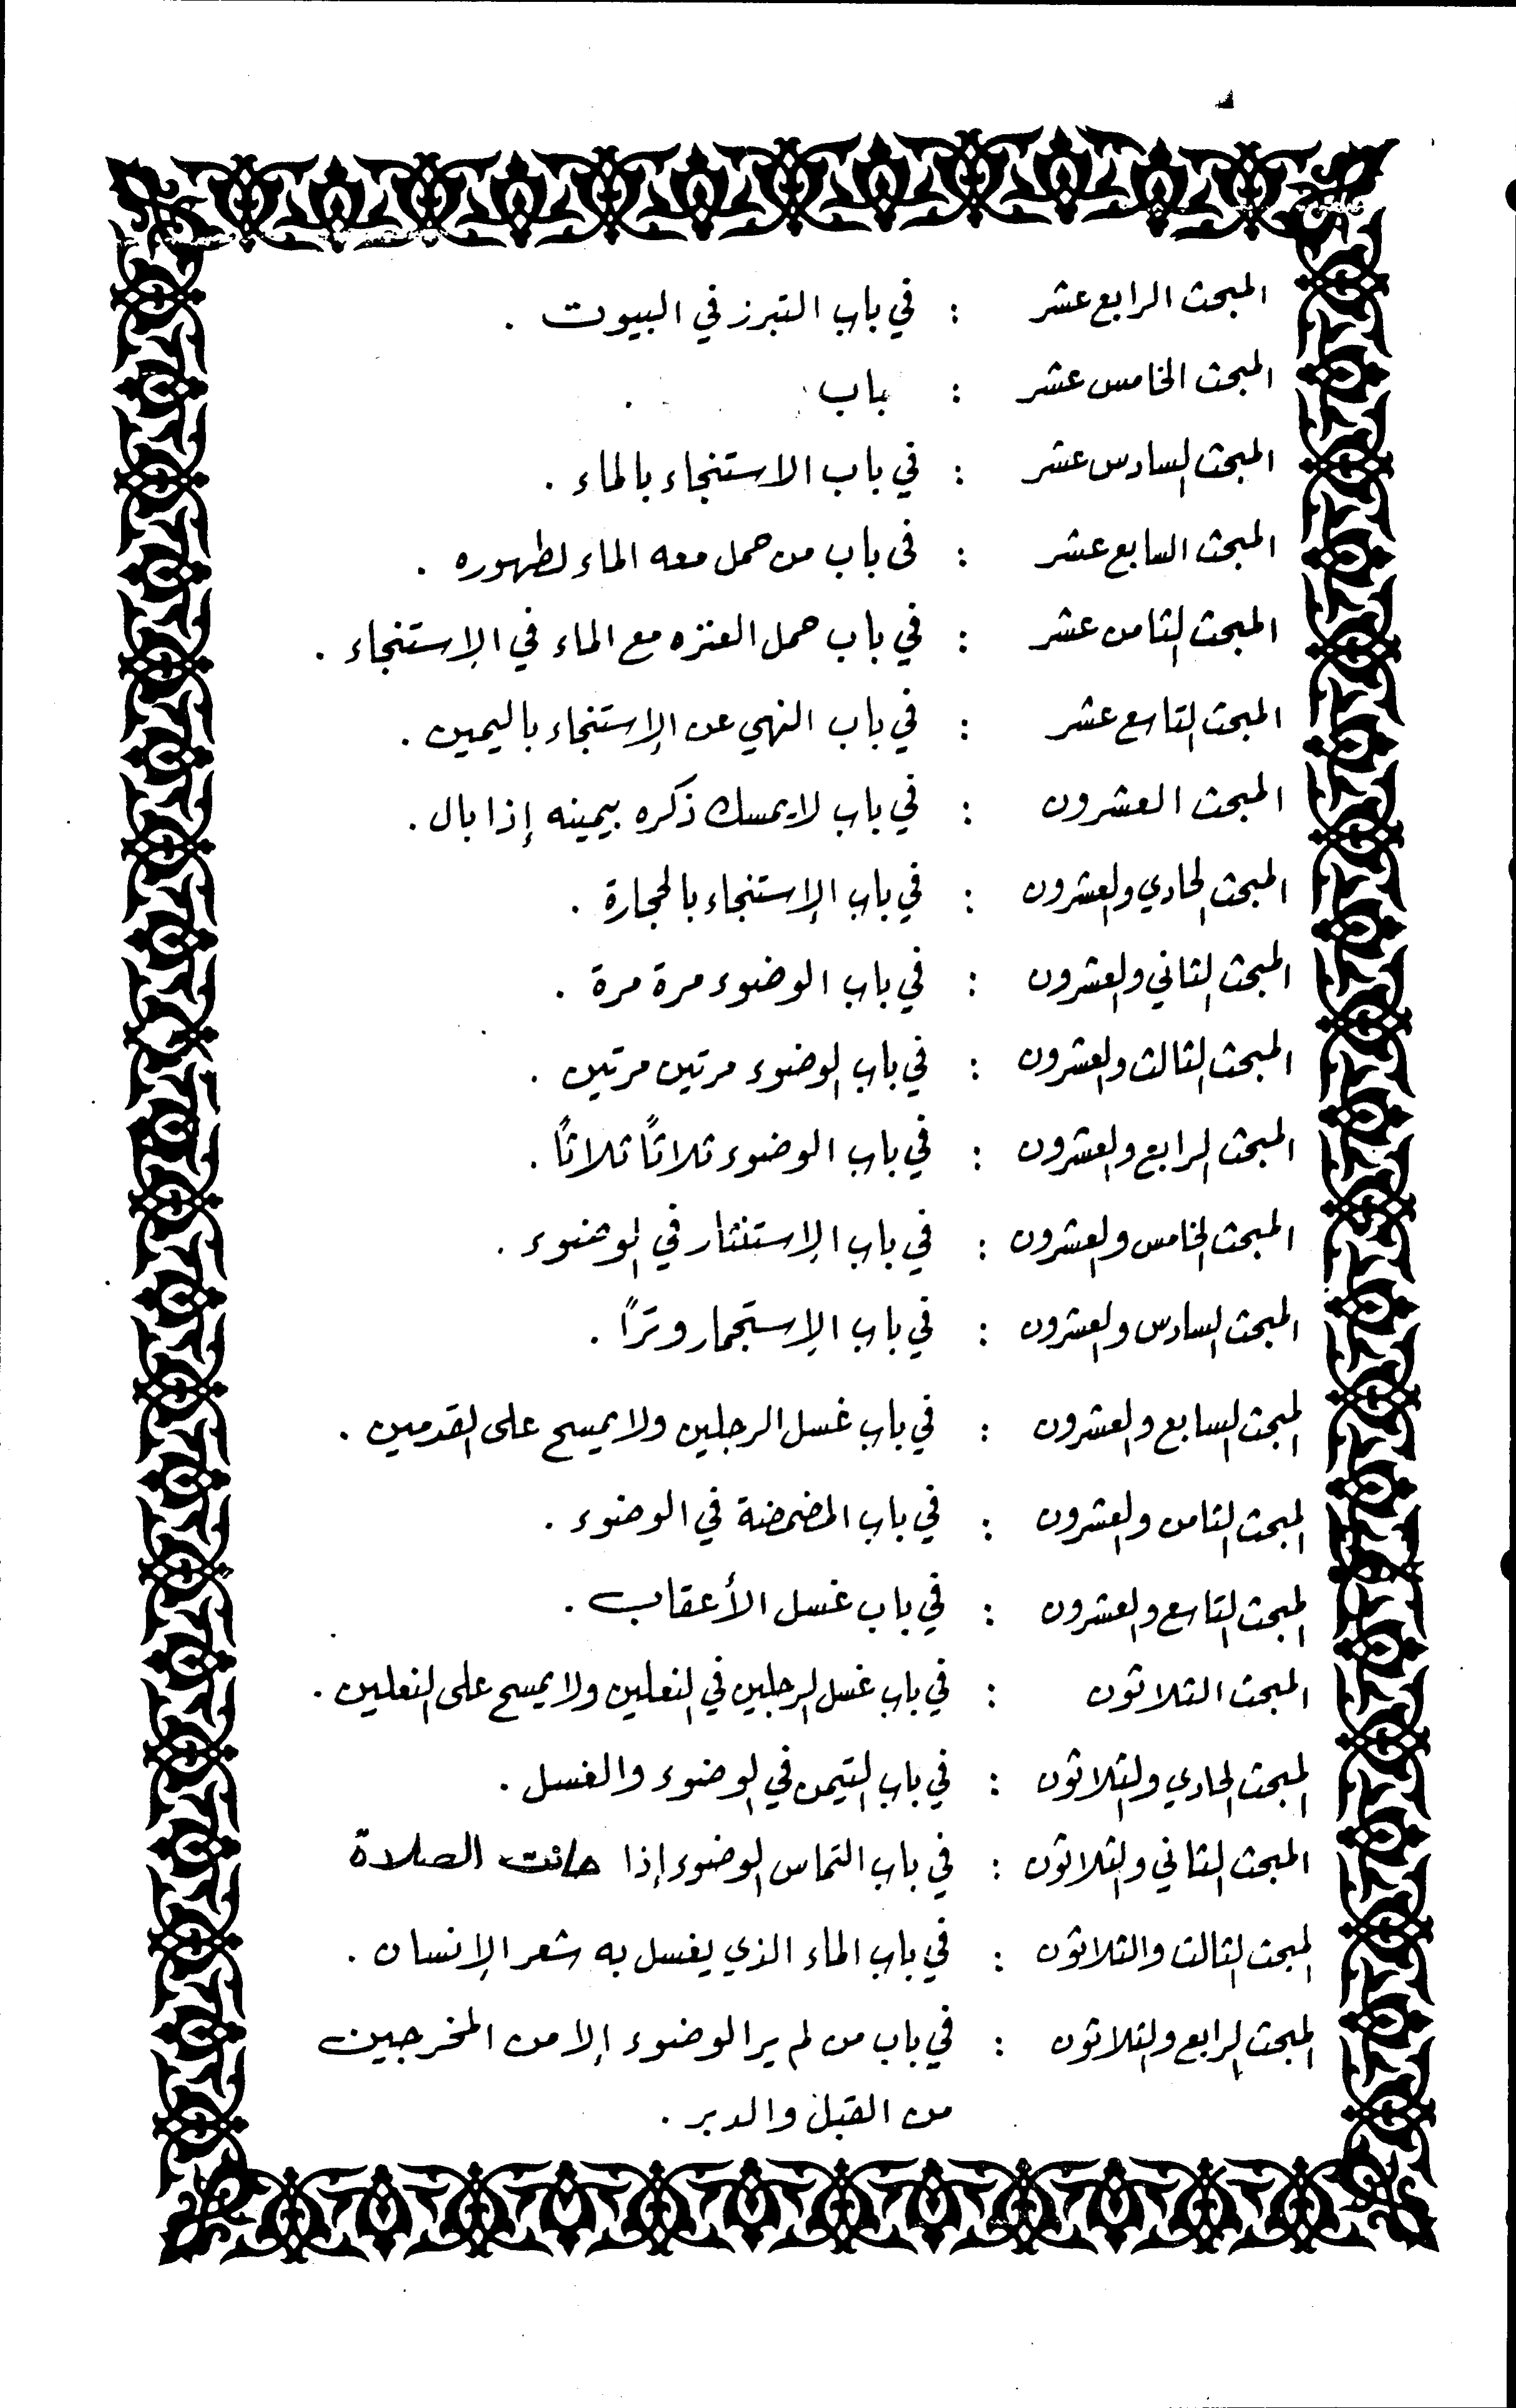 المبحث الرابع عشر : في باب التبرز في البيوت .
المبحث الخامس عشر : باب .
المبحث السادس عشر : في باب الاستنجاء بالماء .
المبحث السابع عشر : فى باب من حمل معه الماء لطهوره .
المبحث الثامن عشر : في باب حمل العنزه مع الماء في الإستنجاء .
المبحث التاسع عشر : في باب النهي عن الإستنجاء باليمين .
المبحث العشرون : في باب لايمسك ذكره بيمينه إذا بال .
المبحث الحادي والعشرون : في باب الإستنجاء بالحجارة .
المبحث الثاني والعشرون : في باب الوضوء مرة مرة .
المبحث الثالث والعشرون : في باب الوضوء مرتين مرتين .
المبحث الرابع والعشرون : في باب الوضوء ثلاثاً ثلاثاً .
المبحث الخامس والعشرون : في باب الإستنثار في الوضوء .
المبحث السادس والعشرون : في باب الإستجمار وتراً .
المبحث السابع والعشرون : في باب غسل الرجلين ولا يمسح على القدمين .
المبحث الثامن والعشرون : في باب المضمضة في الوضوء .
المبحث التاسع والعشرون : في باب غسل الأعقاب .
المبحث الثلاثون : في باب غسل الرجلين في النعلين ولا يمسح على النعلين .
المبحث الحادي والثلاثون : في باب التيمن في الوضوء والغسل .
المبحث الثاني والثلاثون : في باب التماس الوضوء إذا حانت الصلاة
المبحث الثالث والثلاثون : في باب الماء الذي يغسل به شعر الإنسان .
المبحث الرابع والثلاثون : في باب من لم ير الوضوء إلا من المخرجين
من القبل والدبر .